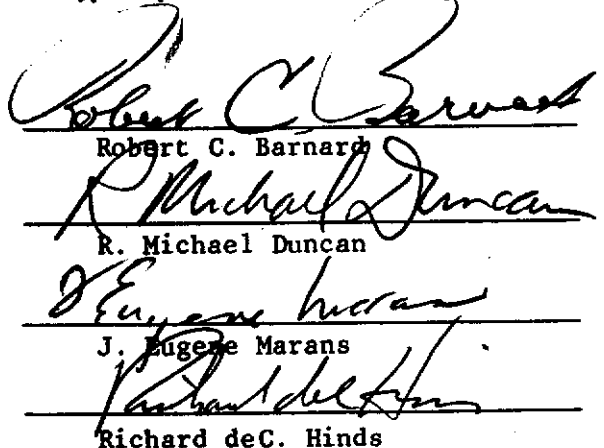 Robert C. Barnard
Robert C. Barnard
R Michael Duncan
R. Michael Duncan
J Eugene Marans
J. Eugene Marans
Richard deC Hinds
Richard deC. Hinds